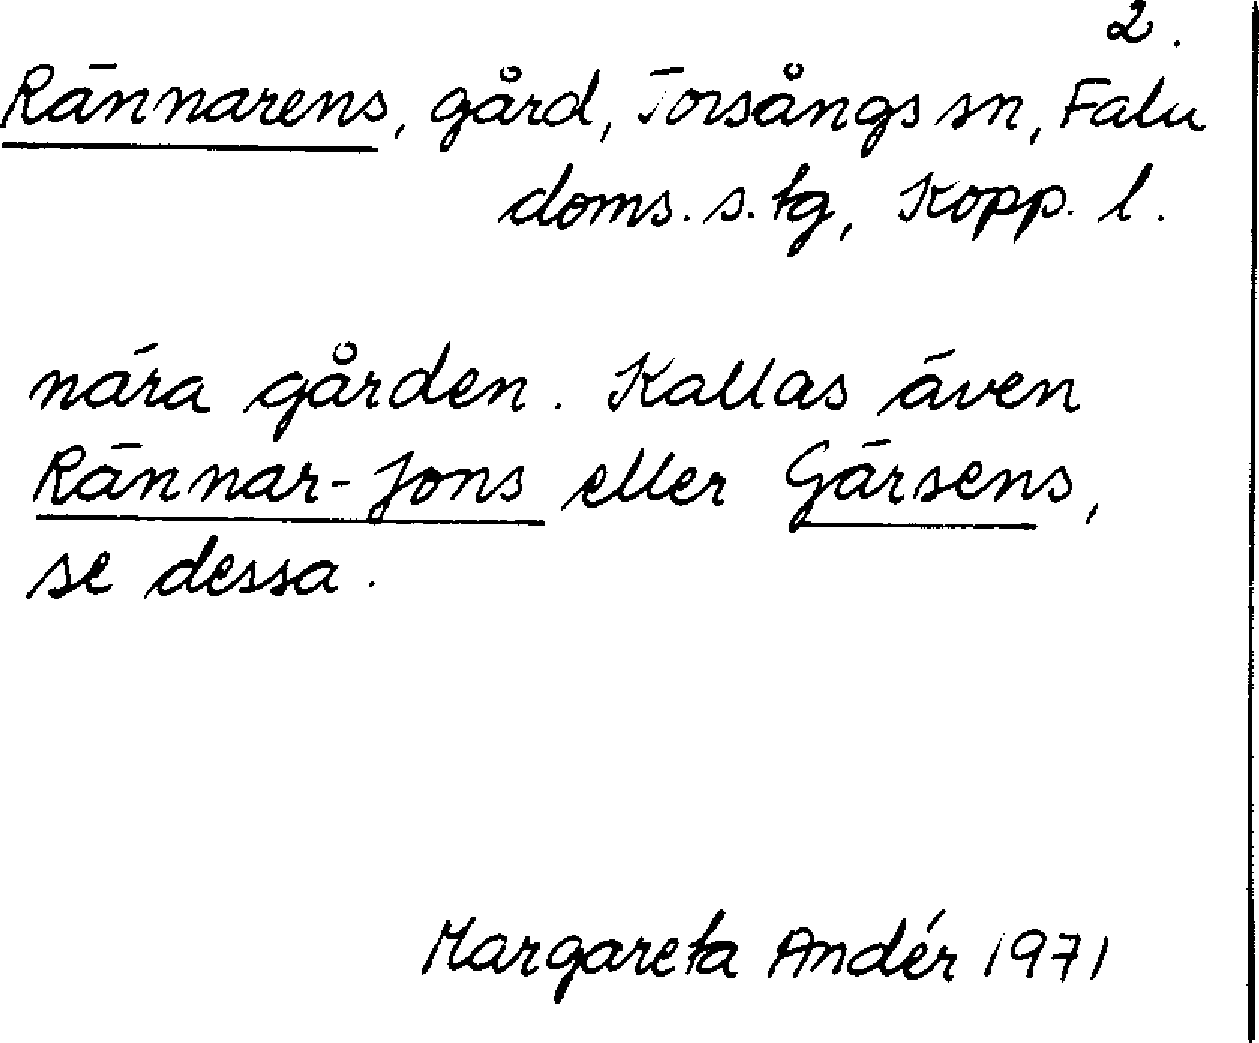 2.
Rännarens, gård, Torsångs sn, Falu
doms.s.tg, Kopp. l.
nära gården. Kallas även
Rännar-Jons eller Gärsens,
se dessa.
Margareta Andér 1971